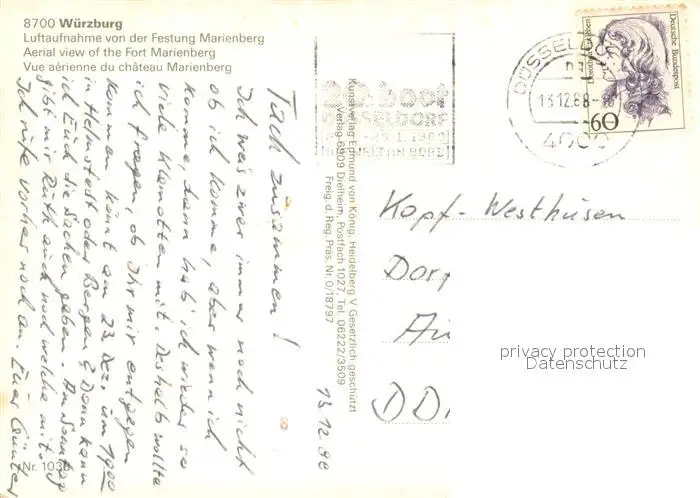 8700 Würzburg
Luftaufnahme von der Festung Marienberg
Aerial view of the Fort Marienberg
Vue aérienne du château Marienberg
Tach zusammen!
Ich weis zwar immer noch nicht
ob ich komme, aber wenn ich
komme, dann hab ich wieder so
viele Klamotten mit. Deshalb wollte
ich fragen, ob Ihr mir entgegen
kommen könnt am 23. Dez. um 19⁰⁰
in Helmstedt oder Bergen? Dann kann
ich Euch die Sachen geben. Am Sonntag
gibt mir Ruth auch noch welche mit.
Ich rufe vorher noch an. Euer Günter
13 12 88
Nr. 1030
Kunstverlag Edmund von König, Heidelberg V Gesetzlich geschützt
Verlag 6909 Dielheim, Postfach 1027, Tel. 06222/3509
Freig. d. Reg. Präs. Nr. 0/18797
boot
DÜSSELDORF
1.1989
DÜSSELD
13.12.88-16
4000
Deutsche Bundespost
60
Kopf-Westhusen
Dorf
DD
privacy protection
Datenschutz